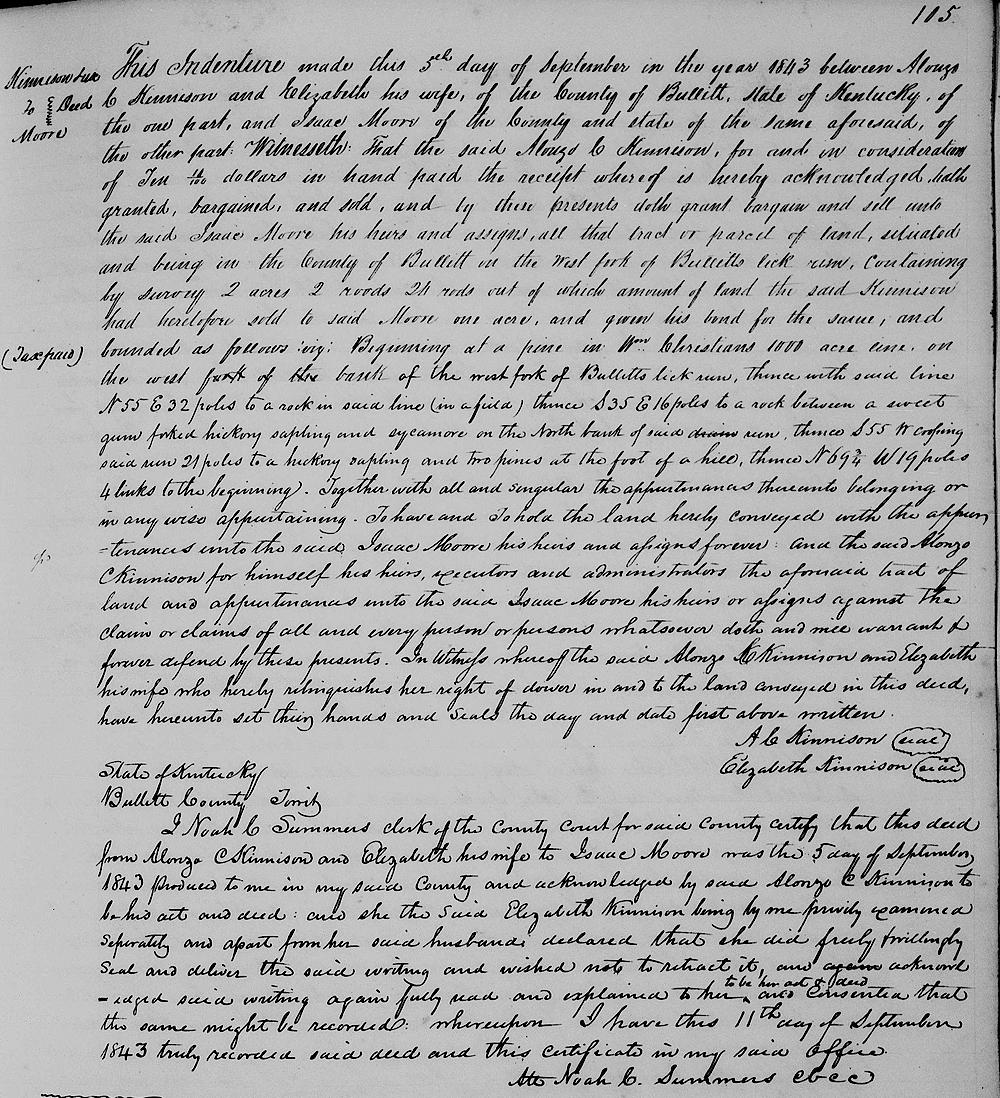 105.
Kinnison &ux
to } Deed
Moore
This Indenture made this 5th day of September in the year 1843 between Alonzo
C Kennison and Elizabeth his wife, of the County of Bullitt, state of Kentucky, of
the one part, and Isaac Moore of the County and state of the same aforesaid, of
the other part: Witnesseth: That the said Alonzo C Kennison, for and in consideration
of Ten dollars in hand paid the receipt whereof is hereby acknowledged, hath
granted, bargained, and sold, and by these presents doth grant bargain and sell unto
the said Isaac Moore his heirs and assigns, all that tract or parcel of land, situated
and being in the County of Bullitt on the west fork of Bullitts lick run, Containing
by survey 2 acres 2 roods 24 rods out of which amount of land the said Kennison
had heretofore sold to said Moore one acre, and given his bond for the same, and
(Tax paid)
bounded as follows viz: Beginning at a pine in Wm Christians 1000 acre line, on
the west fork of the bank of the west fork of Bullitts lick run, thence with said line
N 55 E 32 poles to a rock in said line (in a field) thence S 35 E 16 poles to a rock between a sweet
gum forked hickory sapling and sycamore on the North bank of said drain run, thence S 55 W crossing
said run 21 poles to a hickory sapling and two pines at the foot of a hill, thence N 69¾ W 19 poles
4 links to the beginning). Together with all and singular the appurtenances thereunto belonging or
in any wise appurtaining. To have and To hold the land hereby conveyed with the appur
-tenances unto the said Isaac Moore his heirs and assigns forever: and the said Alonzo
C Kinnison for himself his heirs, executors and administrators the aforesaid tract of
land and appurtenances unto the said Isaac Moore his heirs or assigns against the
claim or claims of all and every person or persons whatsoever doth and will warrant &
forever defend by these presents. In Witness whereof the said Alonzo C Kinnison and Elizabeth
his wife who hereby relinquishes her right of dower in and to the land conveyed in this deed,
have hereunto set their hands and seals the day and date first above written.
A C Kinnison (seal)
Elizabeth Kinnison (seal)
State of Kentucky
Bullett County Towit
I Noah C Summers clerk of the County Court for said County certify that this deed
from Alonzo C Kinnison and Elizabeth his wife to Isaac Moore was the 5 day of September
1843 produced to me in my said County and acknowledged by said Alonzo C Kinnison to
be his act and deed: and she the said Elizabeth Kinnison being by me privily examined
seperately and apart from her said husband: declared that she did freely & willingly
seal and deliver the said writing and wished not to retract it, and again acknowl
to be her act & deed
-edged said writing again fully read and explained to her, and Consented that
the same might be recorded: whereupon I have this 11th day of September
1843 truly recorded said deed and this certificate in my said office
Att Noah C. Summers cbcc